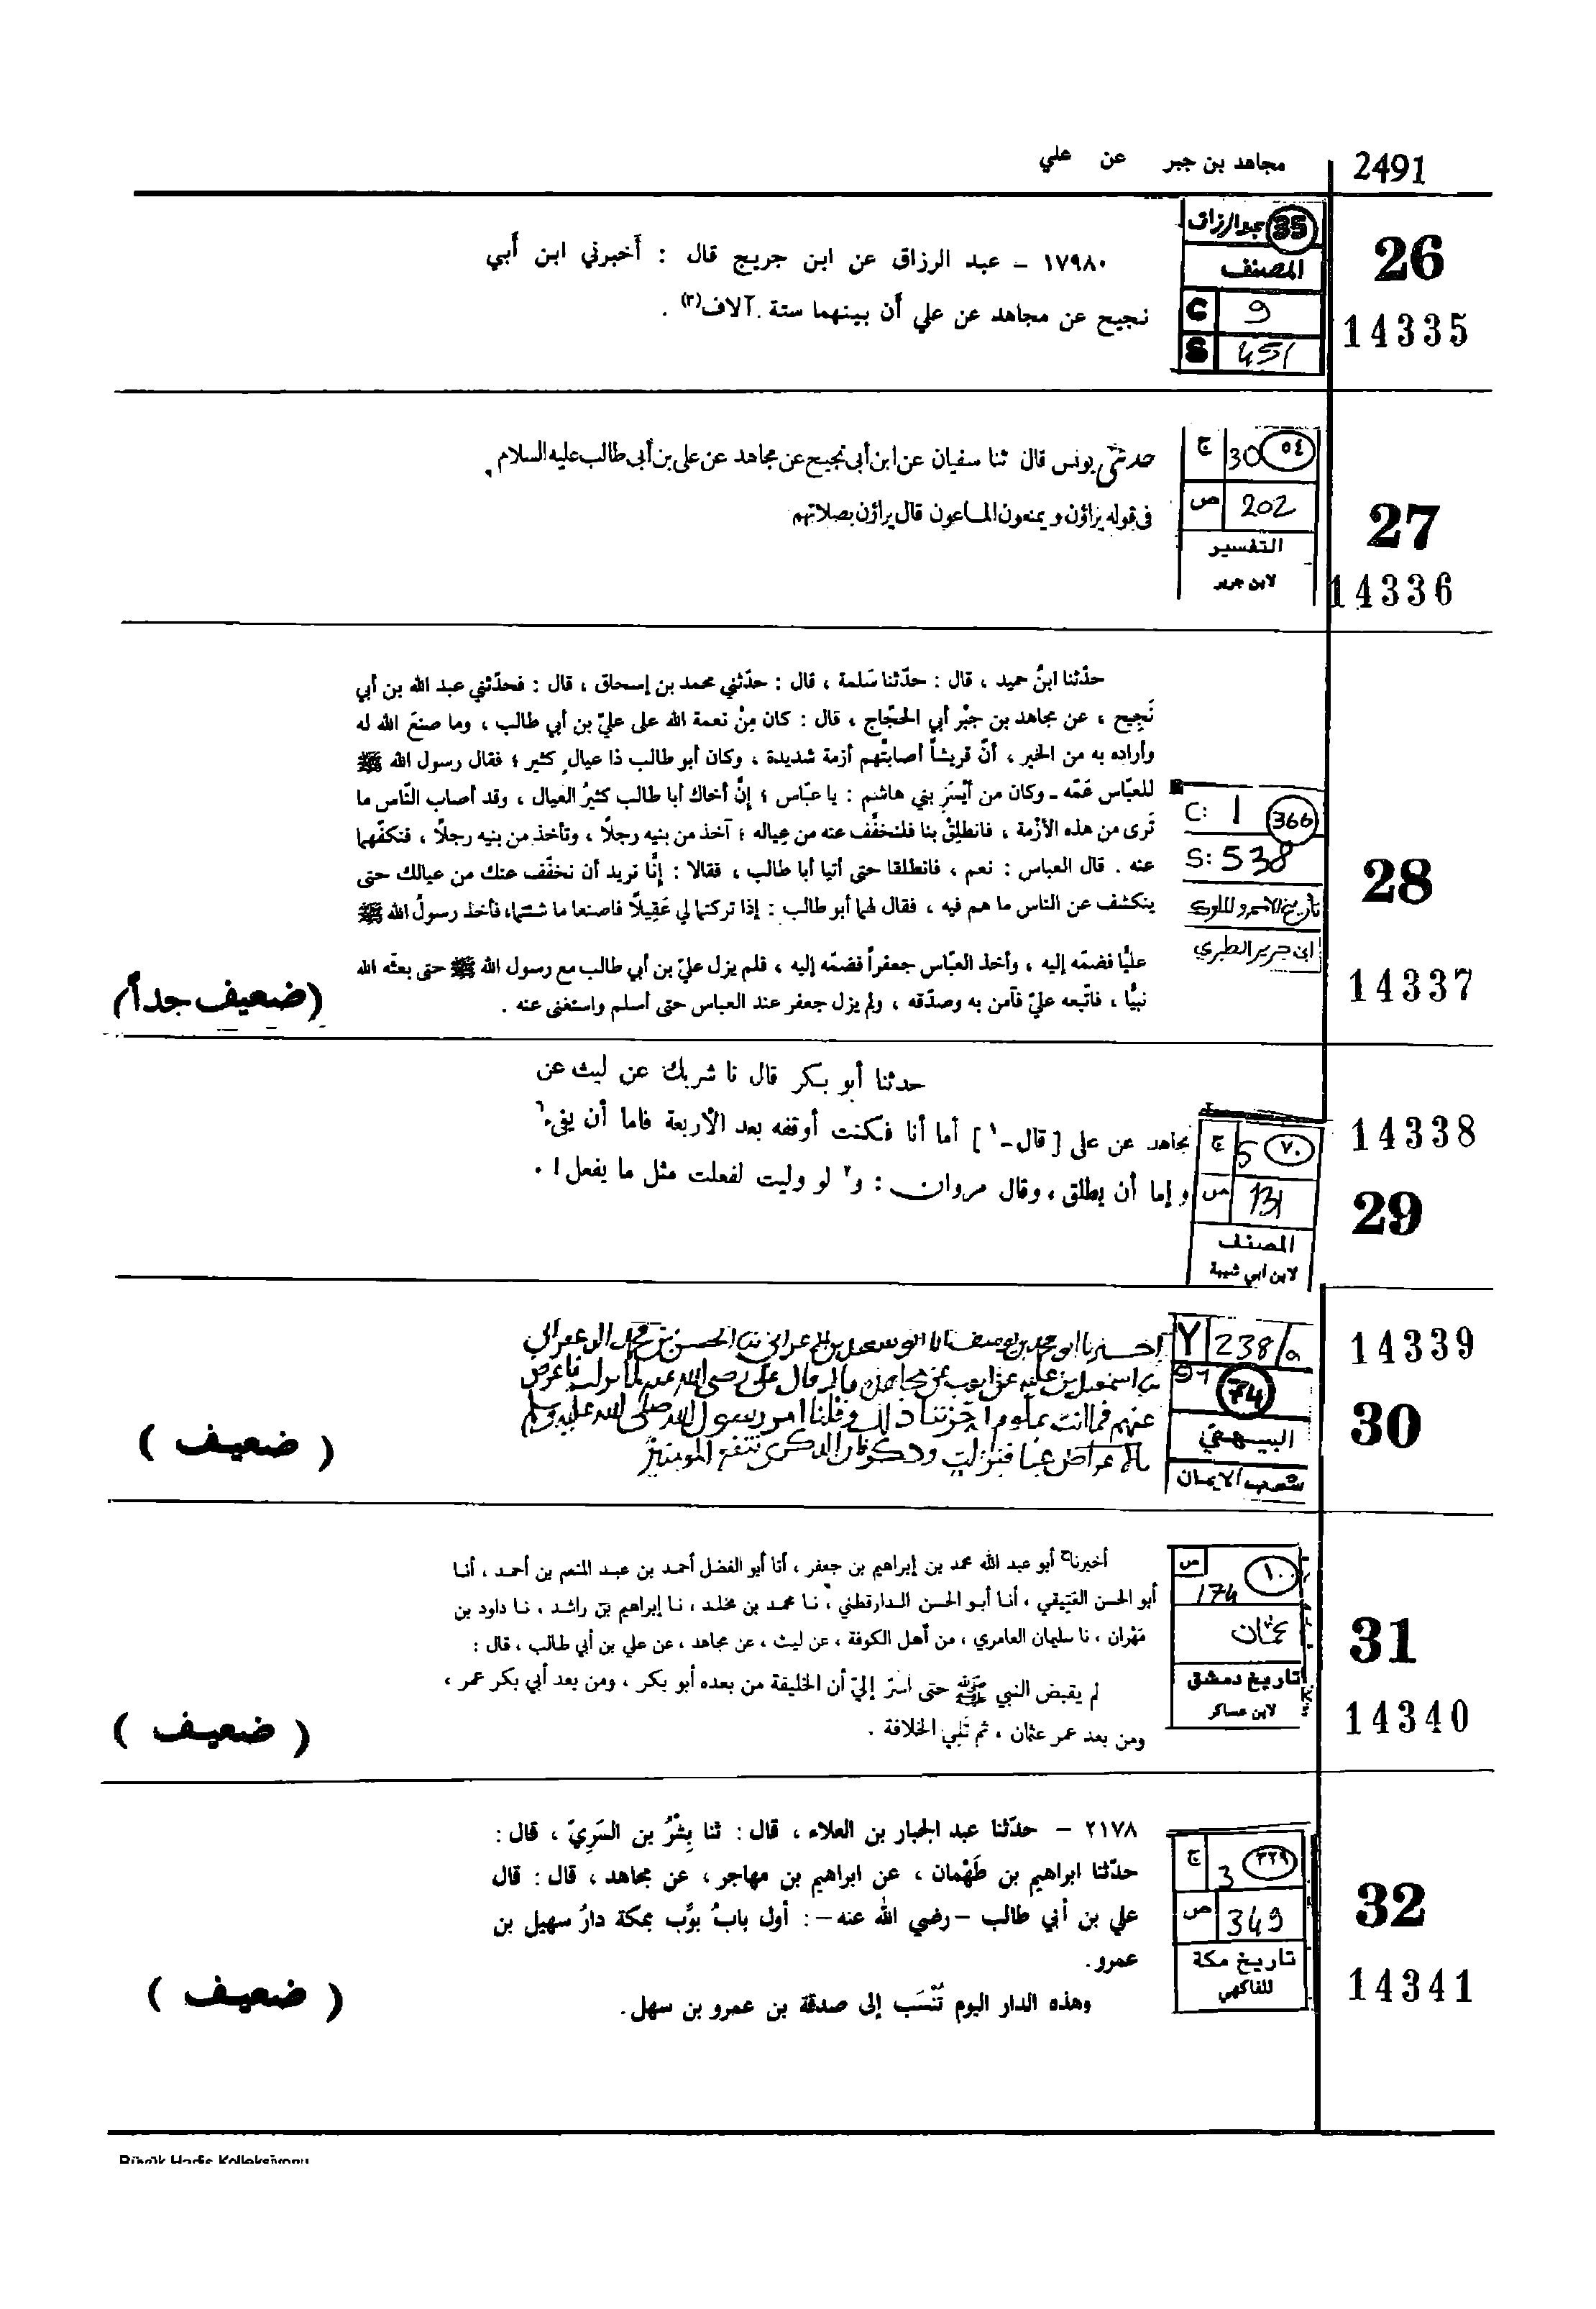 2491
مجاهد بن جبر عن علي
26
14335
35 عبد الرزاق
المصنف
C 9
S 451
١٧٩٨٠ - عبد الرزاق عن ابن جريج قال : أخبرني ابن أبي
نجيح عن مجاهد عن علي أن بينهما ستة آلاف(٣) .
27
14336
ج 30 ٥٤
ص 202
التفسير
لابن جرير
حدثني يونس قال ثنا سفيان عن ابن أبي نجيح عن مجاهد عن علي بن أبي طالب عليه السلام
في قوله يراؤن ويمنعون الماعون قال يراؤن بصلاتهم
28
14337
C: 1 366
S: 538
تاريخ الأمم والملوك
ابن جرير الطبري
حدّثنا ابنُ حميد ، قال : حدّثنا سَلمة ، قال : حدّثني محمد بن إسحاق ، قال : فحدّثني عبد الله بن أبي
نَجِيح ، عن مجاهد بن جبْر أبي الحجّاج ، قال : كان مِنْ نعمة الله على عليّ بن أبي طالب ، وما صنعَ الله له
وأراده به من الخير ، أنّ قريشاً أصابتْهم أزمة شديدة ، وكان أبو طالب ذا عيالٍ كثير ؛ فقال رسول الله ﷺ
للعبّاس عَمّه - وكان من أيْسَرِ بني هاشم : يا عبّاس ؛ إنَّ أخاك أبا طالب كثيرُ العيال ، وقد أصاب النّاس ما
تَرى من هذه الأزْمة ، فانطلِقْ بنا فلنخفِّف عنه من عِياله ؛ آخذ من بنيه رجلاً ، وتأخذ من بنيه رجلاً ، فنكفّهما
عنه . قال العباس : نعم ، فانطلقا حتى أتيا أبا طالب ، فقالا : إنَّا نريد أن نخفّف عنك من عيالك حتى
ينكشف عن الناس ما هم فيه ، فقال لهما أبو طالب : إذا تركتما لي عَقِيلًا فاصنعا ما شئتما، فأخذ رسولُ الله ﷺ
عليًّا فضمّه إليه ، وأخذ العبّاس جعفراً فضمّه إليه ، فلم يزل عليّ بن أبي طالب مع رسول الله ﷺ حتى بعثه الله
نبيًّا ، فاتّبعه عليّ فآمن به وصدّقه ، ولم يزل جعفر عند العباس حتى أسلم واستغنى عنه .
(ضعيف جداً)
14338
29
ج 5 ٧٠
ص 131
المصنف
لابن ابي شيبة
حدثنا أبو بكر قال نا شريك عن ليث عن
مجاهد عن على [ قال-١ ] أما أنا فكنت أوقفه بعد الأربعة فاما أن يفيء٦
و إما أن يطلق ، وقال مروان : و٢ لو وليت لفعلت مثل ما يفعل ! .
14339
30
Y 238/a
74
البيهقي
شعب الايمان
عنهم فما انت بملوم احزننا ذلك وقلنا امر رسول الله صلى الله عليه وسلم
( ضعيف )
31
14340
ص 174 ١٠٠
عثمان
تاريخ دمشق
لابن عساكر
أخبرنا أبو عبد الله محمد بن إبراهيم بن جعفر ، أنا أبو الفضل أحمد بن عبد المنعم بن أحمد ، أنا
أبو الحسن العَتِيقي ، أنا أبو الحسن الدارقطني ، نا محمد بن مخلد ، نا إبراهيم بن راشد ، نا داود بن
مَهْران ، نا سليمان العامري ، من أهل الكوفة ، عن ليث ، عن مجاهد ، عن علي بن أبي طالب ، قال :
لم يقبض النبي ﷺ حتى أسَرّ إليّ أن الخليفة من بعده أبو بكر ، ومن بعد أبي بكر عمر ،
ومن بعد عمر عثمان ، ثم تَلِي الخلافة .
( ضعيف )
32
14341
ج 3 ٣٢٩
ص 349
تاريخ مكة
للفاكهي
٢١٧٨ - حدّثنا عبد الجبار بن العلاء ، قال : ثنا بِشْرُ بن السَرِيّ ، قال :
حدّثنا ابراهيم بن طَهْمان ، عن ابراهيم بن مهاجر ، عن مجاهد ، قال : قال
علي بن أبي طالب - رضي الله عنه - : أول بابُ بوِّب بمكة دارُ سهيل بن
عمرو.
وهذه الدار اليوم تُنْسَب إلى صدقة بن عمرو بن سهل.
( ضعيف )
Büyük Hadis Kolleksiyonu